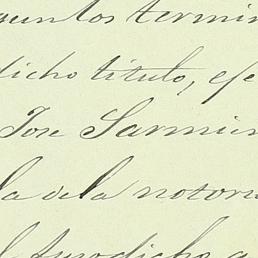 puntos termin
dicho título, efe
Jose Sarmien
la de la notori
el susodicho a